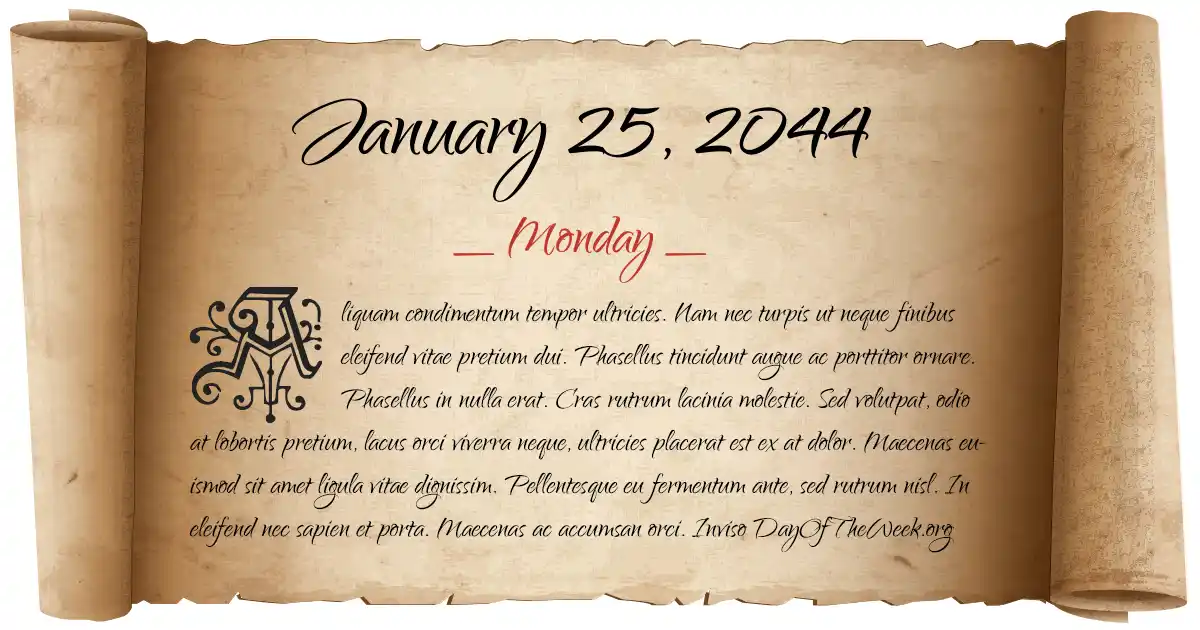 January 25, 2044
_ Monday _
Aliquam condimentum tempor ultricies. Nam nec turpis ut neque finibus
eleifend vitae pretium dui. Phasellus tincidunt augue ac porttitor ornare.
Phasellus in nulla erat. Cras rutrum lacinia molestie. Sed volutpat, odio
at lobortis pretium, lacus orci viverra neque, ultricies placerat est ex at dolor. Maecenas eu-
ismod sit amet ligula vitae dignissim. Pellentesque eu fermentum ante, sed rutrum nisl. In
eleifend nec sapien et porta. Maecenas ac accumsan orci. Inviso DayOfTheWeek.org